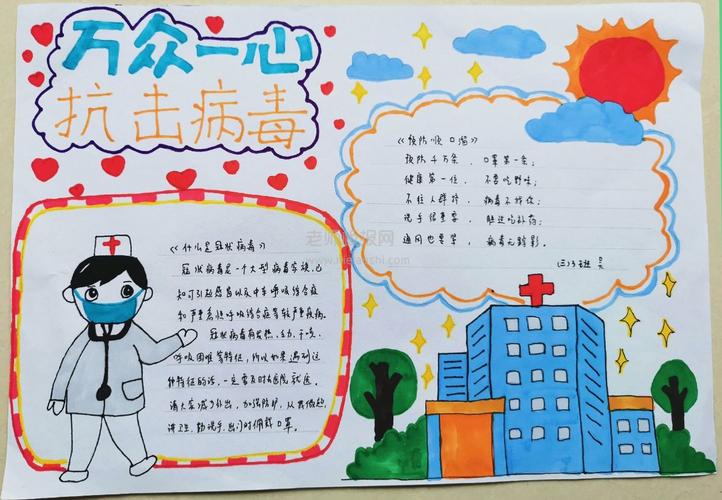 万众一心
抗击病毒
《什么是冠状病毒》
冠状病毒是一个大型病毒家族,已
知可引起感冒以及中东呼吸综合症
和严重急性呼吸综合症等较严重疾病。
冠状病毒有发热、乏力、干咳、
呼吸困难等特征,所以如果遇到这
种特征的话,一定要及时去医院就医。
请大家减少外出,加强防护,从我做起
讲卫生,勤洗手,出门时佩戴口罩。
《预防顺口溜》
预防千万条,口罩第一条;
健康第一位,不要吃野味;
不往人群挤,病毒不找你;
洗手很重要,胜过吃补药;
通风也要紧,病毒无踪影。